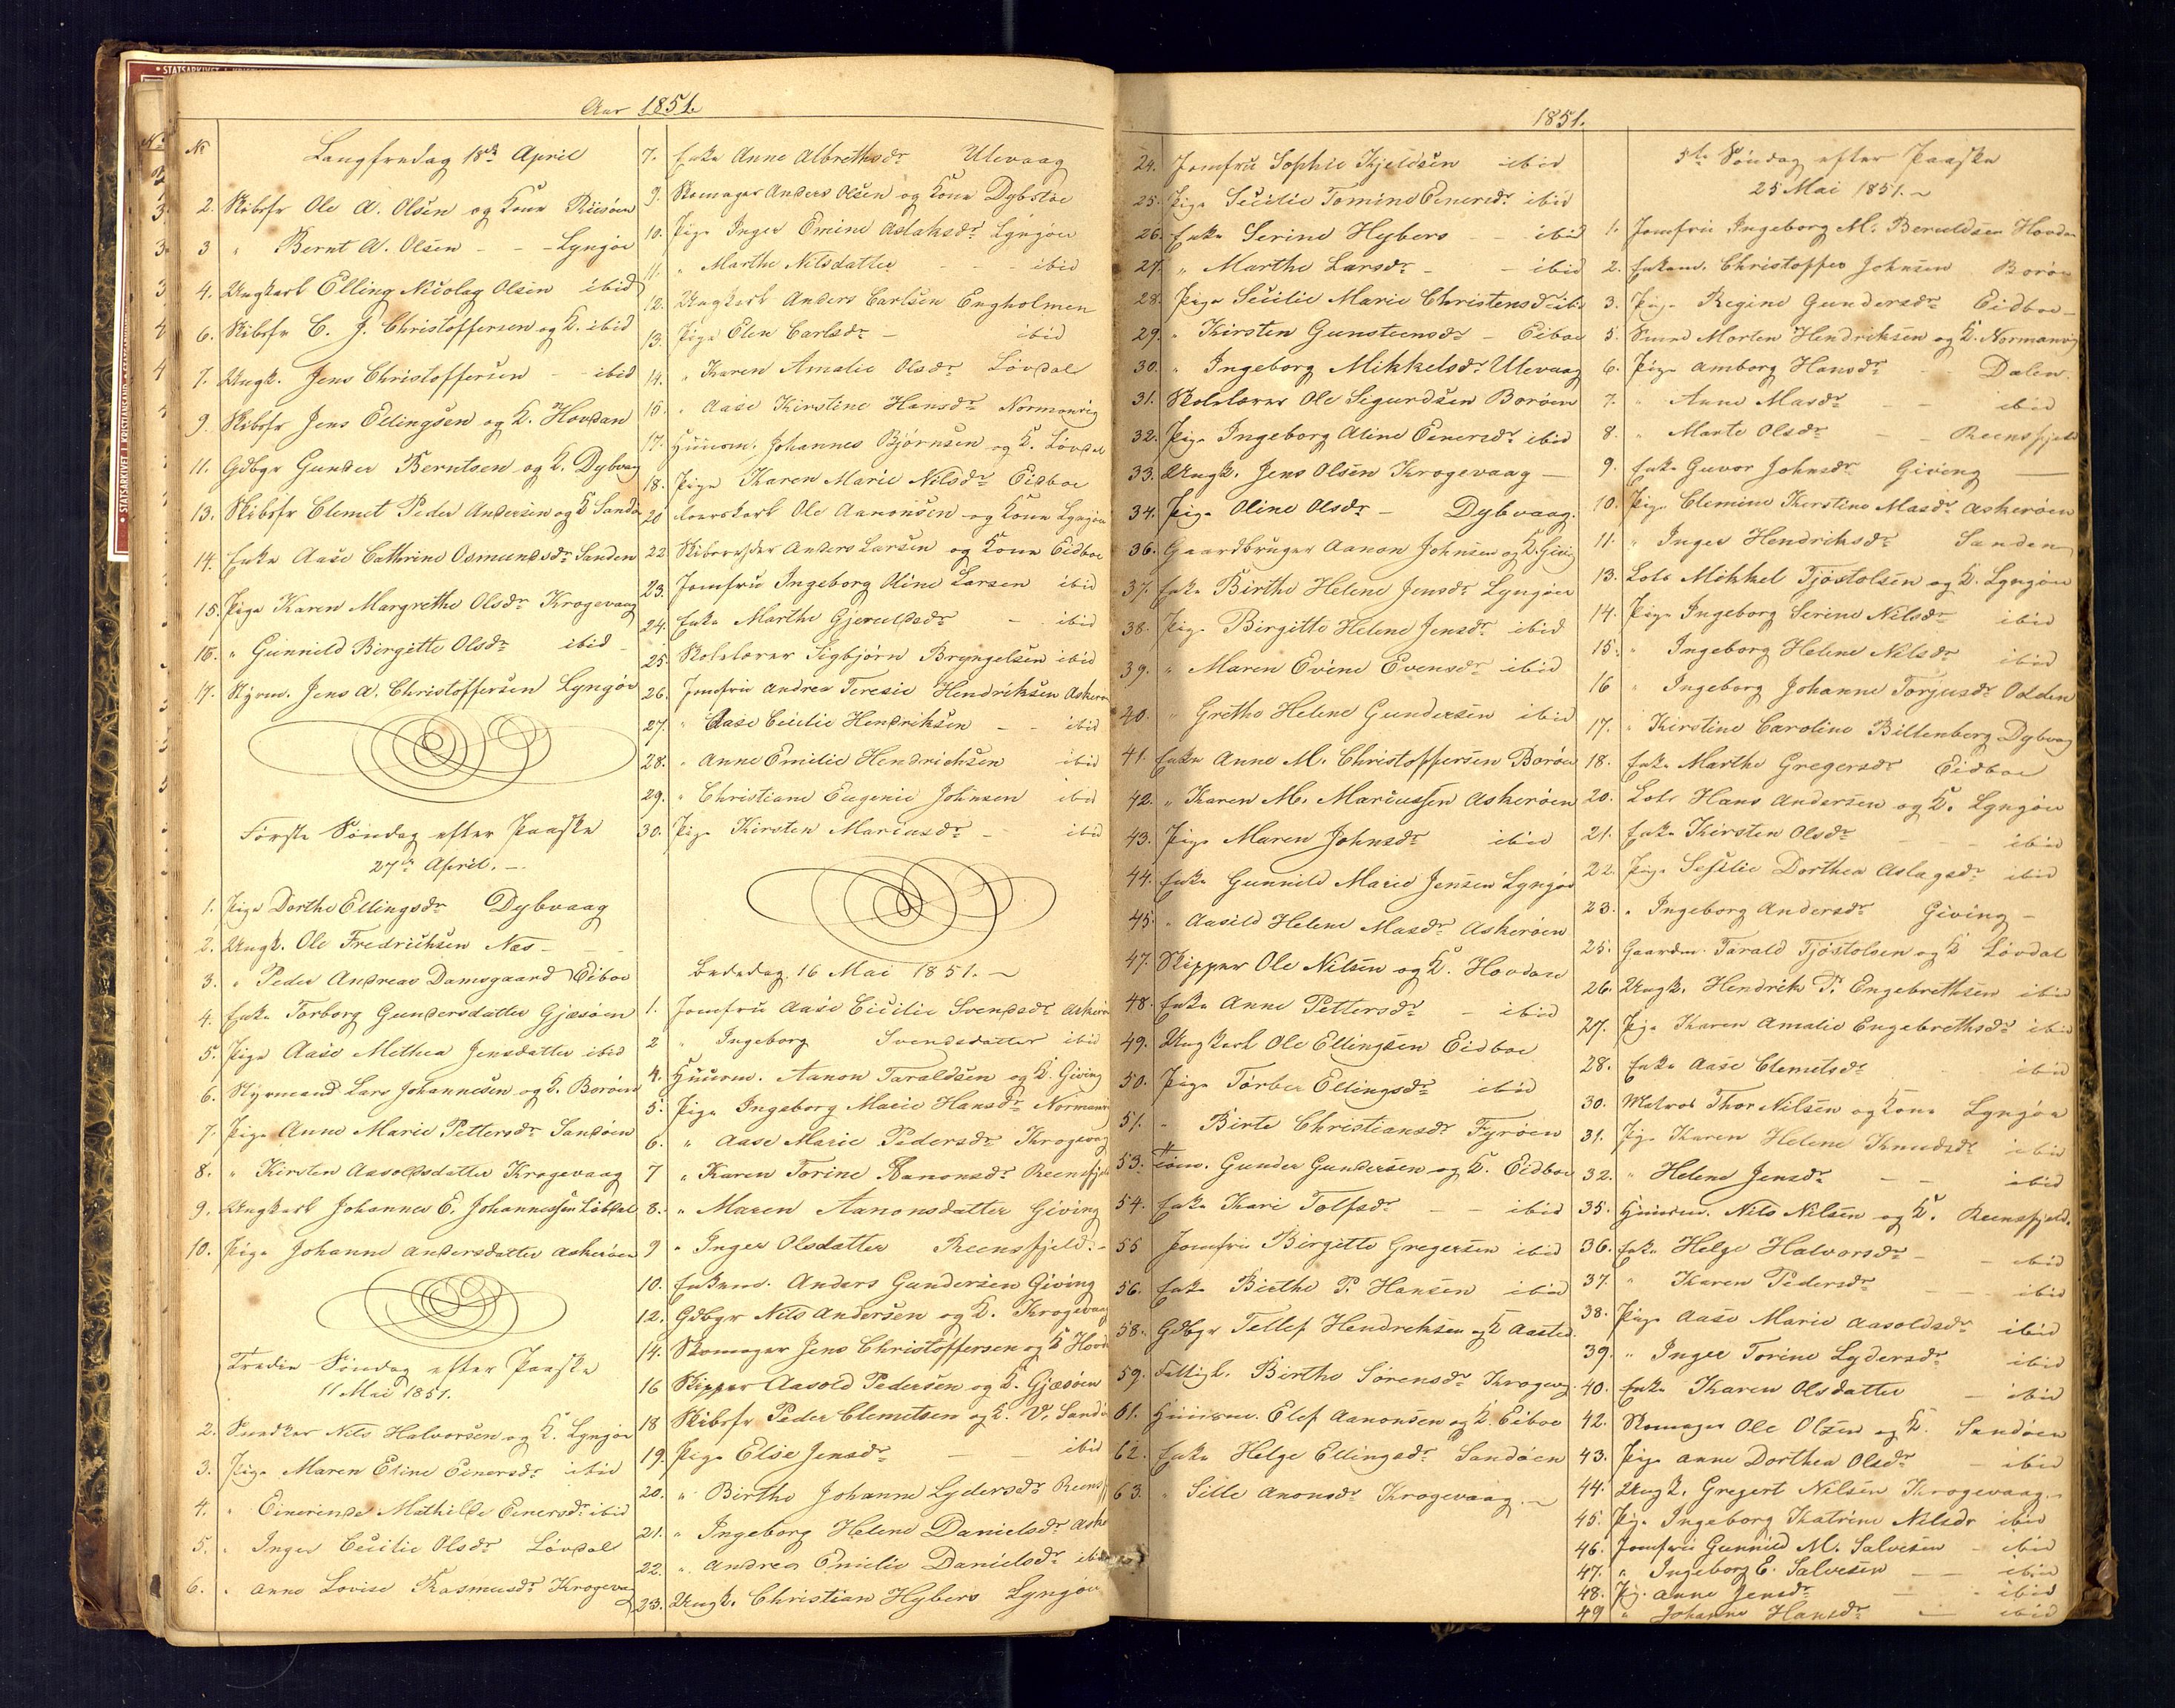 STATSARKIVET I KRISTIANSAND
Aar 1851.
No Langfredag 18de April
2. Skibsfr Ole A. Olsen og Kone Riisøen
3 " Bernt A. Olsen - - - Lyngøe
4. Ungkarl Elling Nicolay Olsen ibid
6. Skibsfr C. J. Christoffersen og K. ibid
7. Ungk. Jens Christoffersen - - ibid
9. Skibsfr Jens Ellingsen og K. Hovdan
11. Gdbgr Gunder Berntsen og K. Dybvaag
13. Skibsfr Clemet Peder Andersen og K Sandø
14. Enke Aase Cathrine Osmundsdr Sanden
15. Pige Karen Margrethe Olsdr Krogevaag
16. " Gunnild Birgitte Olsdr ibid
17. Styrm. Jens A. Christoffersen Lyngøe
Første Søndag efter Paaske
27de April. -
1. Pige Dorthe Ellingsdr Dybvaag
2. Ungk. Ole Fredrichsen Næs -
3. " Peder Andreas Damsgaard Eiboe
4. Enke Torborg Gundersdatter Gjæsøen
5. Pige Aase Mathea Jensdatter ibid
6. Styrmand Lars Johannesen og K. Borøen
7. Pige Anne Marie Pettersdr Sandøen
8. " Kirsten Aasoldsdatter Krogevaag
9. Ungkarl Johannes E. Johannessen Løvdal
10. Pige Johanne Andersdatter Askerøen
Tredie Søndag efter Paaske
11 Mai 1851.
2. Snedker Nils Halvorsen og K. Lyngøe
3. Pige Maren Eline Einersdr ibid
4. " Einerinde Mathilde Einersdr ibid
5. " Inger Cecilie Olsdr Løvdal
6. " Anne Lovise Rasmusdr Krogevaag
7. Enke Anne Albrethsdr Ulevaag
9. Skomager Anders Olsen og Kone Dybstøe
10. Pige Inger Emine Aslaksdr Lyngøen
11. " Marthe Nilsdatter - - - ibid
12. Ungkarl Anders Carlsen Engholmen
13. Pige Elen Carlsdr - ibid
14. " Karen Amalie Olsdr Løvdal
15. " Aase Kirstine Hansdr Normanvig
17. Huusm. Johannes Bjørnsen og K. Løvdal
18. Pige Karen Marie Nilsdr Eidboe
20 Ole Aanonsen og Kone Lyngøen
22 Anders Larsen og Kone Eidboe
23. Jomfru Ingeborg Oline Larsen ibid
24. Enke Marthe Gjeruldsdr - ibid
25. Skolelærer Sigbjørn Bryngelsen ibid
26. Jomfru Andrea Teresie Hendriksen Askerøen
27. " Aase Cecilie Hendriksen - - ibid
28. " Anne Emilie Hendrichsen ibid
29. " Christiane Eugenie Johnsen ibid
30. Pige Kirsten Mariusdr - ibid
Bededag 16 Mai 1851. -
1. Jomfru Aase Cicilie Svendsdr Askerøen
2 " Ingeborg Svendsdatter ibid
4. Huusm. Aanon Taraldsen og K. Giving
5. Pige Ingeborg Marie Hansdr Normanvig
6. " Aase Marie Pedersdr Krogevaag
7 " Karen Torine Aanonsdr Reensfjeld
8. " Maren Aanonsdatter Giving
9 " Inger Olsdatter Reensfjeld. -
10. Enkem. Anders Gundersen Giving
12. Gdbgr Nils Andersen og K. Krogevaag
14. Skomager Jens Christoffersen og K Hovdan
16 Skipper Aasold Pedersen og K. Gjæsøen
18 Skibsfr Peder Clemetsen og K. V. Sandøen
19. Pige Elise Jensdr - ibid
20. " Birthe Johanne Lydersdr Reensfj
21. " Ingeborg Helene Danielsdr Aske
22. " Andrea Emilie Danielsdr ibid
23. Ungk. Christian Hybers Lyngøen
1851.
24. Jomfru Sophie Kjeldsen ibid
25. Pige Secilie Tomine Einersdr ibid
26. Enke Serine Hybers - - ibid
27. " Marthe Larsdr - - ibid
28. Pige Secilie Marie Christensdr ibi.
29. " Kirsten Gunsteensdr - Eiboe
30. " Ingeborg Mikkelsdr Ulevaag
31. Skolelærer Ole Sigurdsen Borøen
32. Pige Ingeborg Aline Einersdr ibid
33. Ungk. Jens Olsen Krogevaag -
34. Pige Oline Olsdr - Dybvaag.
36. Gaardbruger Aanon Johnsen og K. Givig
37. Enke Birthe Helene Jensdr Lyngøen
38. Pige Birgitte Helene Jensdr ibid
39. " Maren Evine Evensdr ibid
40. " Grethe Helene Gundersen ibid
41. Enke Anne M. Christoffersen Borøen
42. " Karen M. Mariussen Askerøen
43. Pige Maren Johnsdr ibid
44. Enke Gunnild Marie Jensen Lyngøe
45. " Aasild Helene Masdr Askerøen
47. Skipper Ole Nilsen og K. Hovdan
48. Enke Anne Pettersdr - ibid
49. Ungkarl Ole Ellingsen Eidboe
50. Pige Torber Ellingsdr ibid
51. " Birte Christiansdr Fyrøen
53. Tøm. Gunder Gundersen og K. Eidboe
54. Enke Kari Tolfsdr - - ibid
55 Jomfru Birgitte Gregersen ibid
56. Enke Birthe P. Hansen ibid
58. Gdbgr Tellef Hendreksen og K Aasted
59. Fattigl. Birthe Sørensdr Krogevag
61. Huusm. Elef Aanonsen og K. Eiboe
62. Enke Helge Ellingsdr Sandøen
63. " Sille Anonsdr Krogevaag. -
5te Søndag efter Paaske
25 Mai 1851. -
1. Jomfru Ingeborg M. Beruldsen Hovdan
2. Enkem. Christoffer Johnsen Borøen
3. Pige Regine Gundersdr Eidboe -
5. Smed Morten Hendriksen og K. Normanvig
6. Pige Amborg Hansdr - Dalen.
7. " Anne Masdr - - ibid
8. " Marte Olsdr - - Reensfjeld
9. Enke Guvor Johnsdr Giving
10. Pige Clemine Kerstine Masdr Askerøen
11. " Inger Hendriksdr Sanden
13. Lods Mikkel Tjøstolsen og K. Lyngøen
14. Pige Ingeborg Serine Nilsdr ibid
15. " Ingeborg Helene Nilsdr ibid
16 " Ingeborg Johanne Torjusdr Odden
17. " Kirstine Caroline Billenberg Dybvag
18. Enke Marthe Gregersdr Eidboe
20. Lods Hans Andersen og K. Lyngøen
21. Enke Kirsten Olsdr - - - ibid
22. Pige Sesilie Dorthea Aslagsdr ibid
23. " Ingeborg Andersdr Giving -
25. Gaardm. Tarald Tjøstolsen og K Løvdal
26. Ungk. Hendrik T. Engebrethsen ibid
27. Pige Karen Amalie Engebrethsdr ibid
28. Enke Aase Clemetsdr ibid
30. Matros Thor Nilsen og Kone Lyngøen
31. Pige Karen Helene Knudsdr ibid
32. " Helene Jensdr - - ibid
35. Huusm. Nils Nilsen og K. Reensfjeld.
36. Enke Helge Halvorsdr - - ibid
37. " Karen Pedersdr - - ibid
38. Pige Aase Marie Aasoldsdr ibid
39. " Inger Torine Lydersdr ibid
40. Enke Karen Olsdatter - ibid
42. Skomager Ole Olsen og K. Sandøen
43. Pige Anne Dorthea Olsdr - ibid
44. Ungk. Gregert Nilsen Krogevaag. -
45. Pige Ingeborg Katrine Nilsdr ibid
46. Jomfru Gunnild M. Salvesen - ibid
47. " Ingeborg E. Salvesen - - ibid
48. Pig. Anne Jensdr - - ibid
49 " Johanne Hansdr - ibid